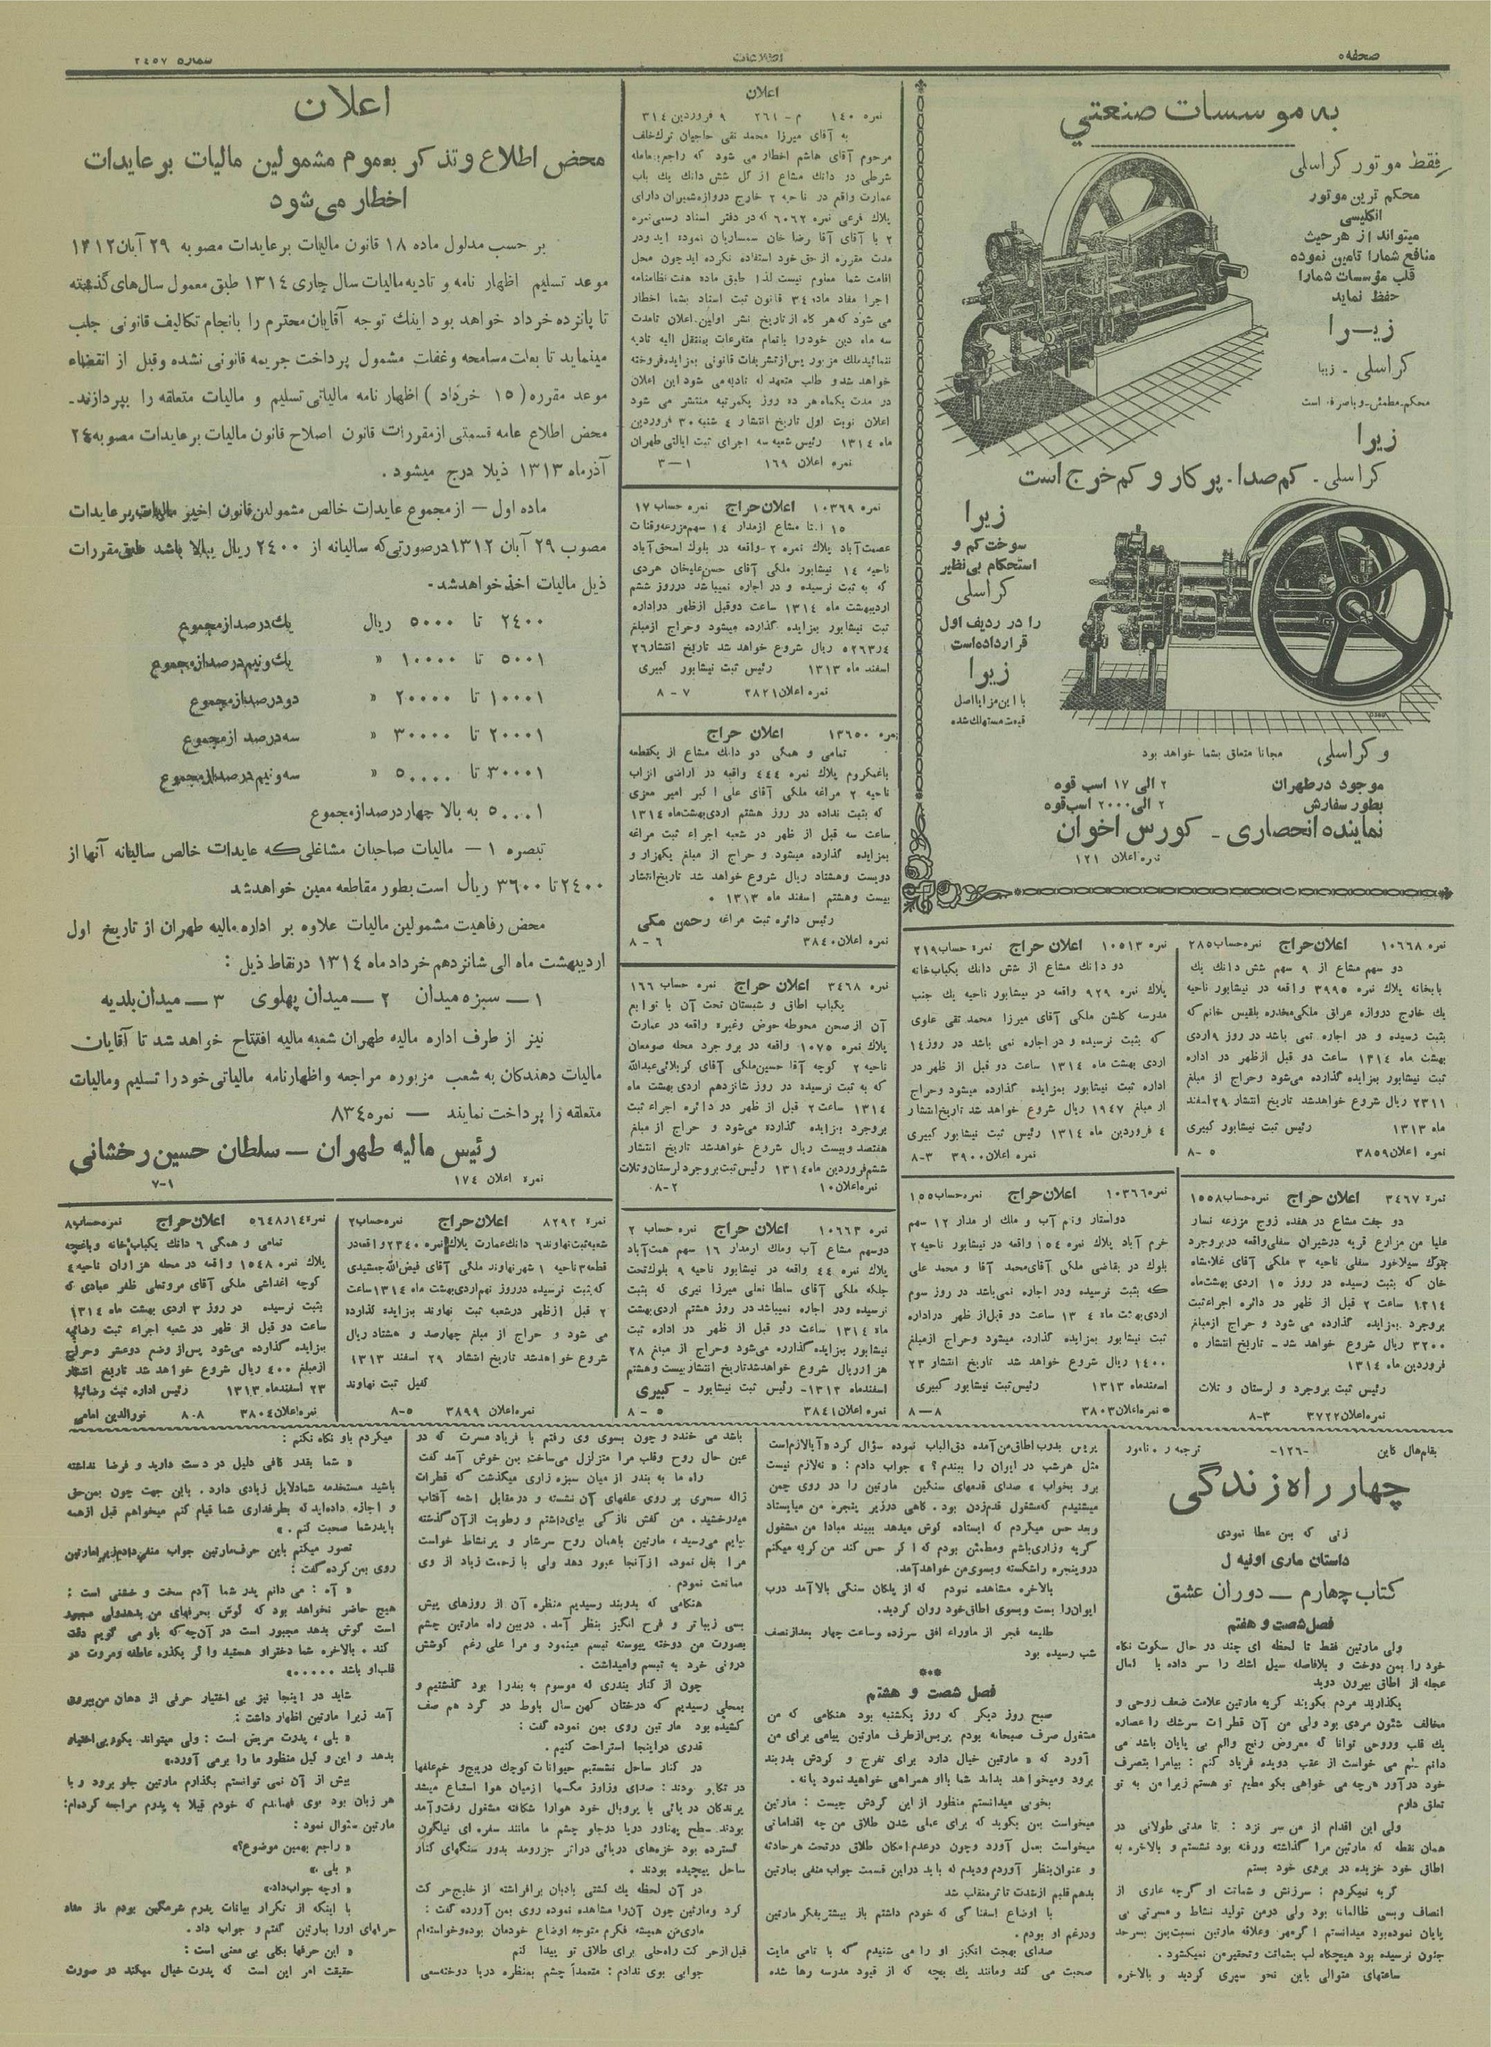 صفحه ۵
اطلاعات
شماره ۲۴۵۷
به موسسات صنعتی
فقط موتور کراسلی
محکم ترین موتور
انگلیسی
میتواند از هر حیث
منافع شمارا تامین نموده
قلب مؤسسات شمارا
حفظ نماید
زیـرا
کراسلی - زیبا
محکم-مطمئن-وباصرفه است
زیرا
کراسلی - کم صدا - پر کار و کم خرج است
زیرا
سوخت کم و
استحکام بی نظیر
کراسلی
را در ردیف اول
قرارداده است
زیرا
با این مزایا اصل
قیمت مستهلك شده
و کراسلی مجانا متعلق بشما خواهد بود
موجود در طهران ۲ الی ۱۷ اسب قوه
بطور سفارش ۲ الی ۲۰۰۰ اسب قوه
نماینده انحصاری - کورس اخوان
نمره اعلان ۱۲۱
نمره ۱۰۶۶۸ اعلان حراج نمره حساب ۲۸۵
دو سهم مشاع از ۹ سهم شش دانك یك
بابخانه پلاك نمره ۳۹۹۵ واقعه در نیشابور ناحیه
یك خارج دروازه عراق ملکی مخدره بلقیس خانم که
بثبت رسیده و در اجاره نمی باشد در روز ۹ اردی
بهشت ماه ۱۳۱۴ ساعت دو قبل ازظهر در اداره
ثبت نیشابور بمزایده گذارده می‌شود وحراج از مبلغ
۲۳۱۱ ریال شروع خواهد شد تاریخ انتشار ۲۹ اسفند
ماه ۱۳۱۳ رئیس ثبت نیشابور کبیری
نمره اعلان ۳۸۵۹ ۵-۸
نمره ۱۰۵۱۳ اعلان حراج نمره حساب ۲۱۹
دو دانك مشاع از شش دانك یکباب خانه
پلاك نمره ۹۲۹ واقعه در نیشابور ناحیه یك جنب
مدرسه گلشن ملکی آقای میرزا محمد تقی علوی
که بثبت نرسیده و در اجاره نمی باشد در روز ۱۴
اردی بهشت ماه ۱۳۱۴ ساعت دو قبل از ظهر در
اداره ثبت نیشابور بمزایده گذارده میشود وحراج
از مبلغ ۱۹۴۷ ریال شروع خواهد شد تاریخ انتشار
۴ فروردین ماه ۱۳۱۴ رئیس ثبت نیشابور کبیری
نمره اعلان ۳۹۰۰ ۳-۸
نمره ۳۴۶۷ اعلان حراج نمره حساب ۱۵۵۸
دو جفت مشاع در هفده زوج مزرعه نسار
علیا من مزارع قریه درشیران سفلی واقعه دربروجرد
سیلاخور سفلی ناحیه ۳ ملکی آقای غلامشاه
خان که بثبت رسیده در روز ۱۵ اردی بهشت ماه
۱۳۱۴ ساعت ۲ قبل از ظهر در دائره اجراء ثبت
بروجرد بمزایده گذارده می شود و حراج ازمبلغ
۳۲۰۰ ریال شروع خواهد شد - تاریخ انتشار ۵
فروردین ماه ۱۳۱۴
رئیس ثبت بروجرد و لرستان و ثلاث
نمره اعلان ۳۷۲۲ ۳-۸
نمره ۱۰۳۶۶ اعلان حراج نمره حساب ۱۵۵
دواستار ونیم آب و ملك از مدار ۱۲ سهم
خرم آباد پلاك نمره ۱۵۴ واقعه در نیشابور ناحیه ۲
بلوك در بقاضی ملکی آقای محمد آقا و محمد علی
که بثبت نرسیده ودر اجاره نمی‌باشد در روز سوم
اردی بهشت ماه ۱۳۱۴ ساعت دو قبل از ظهر دراداره
ثبت نیشابور بمزایده گذارده میشود وحراج ازمبلغ
۱۴۰۰ ریال شروع خواهد شد تاریخ انتشار ۲۳
اسفند ماه ۱۳۱۳ رئیس ثبت نیشابور کبیری
نمره اعلان ۳۸۰۳ ۸-۸
اعلان
نمره ۱۴۰ م-۲۶۱ ۹ فروردین ۳۱۴
به آقای میرزا محمد تقی حاجیان ترك خلف
مرحوم آقای هاشم اخطار می شود که راجع بمعامله
شرطی دو دانك مشاع از کل شش دانك یك باب
عمارت واقع در ناحیه ۲ خارج دروازه شمیران دارای
پلاك فرعی نمره ۶۰۶۲ که در دفتر اسناد رسمی نمره
۲ با آقای آقا رضا خان سمساریان نموده اید ودر
مدت مقرره از حق خود استفاده نکرده اید چون محل
اقامت شما معلوم نیست لذا طبق ماده هفت نظامنامه
اجرا مفاد ماده ۳۴ قانون ثبت اسناد بشما اخطار
می شود که هر گاه از تاریخ نشر اولین اعلان تامدت
سه ماه دین خود را باتمام متفرعات بمنتقل الیه تادیه
ننمائید ملك مزبور پس از تشریفات قانونی بمزایده فروخته
خواهد شد و طلب متعهد له تادیه می شود این اعلان
در مدت یکماه هر ده روز یکمرتبه منتشر می شود
اعلان نوبت اول تاریخ انتشار ۴ شنبه ۳۰ فروردین
ماه ۱۳۱۴ رئیس شعبه سه اجرای ثبت ایالتی طهران
نمره اعلان ۱۶۹ ۱-۳
نمره ۱۰۳۶۹ اعلان حراج نمره حساب ۱۷
مشاع ازمدار ۱۴ سهم مزرعه وقنات
عصمت آباد پلاك نمره ۲-واقعه در بلوك اسحق آباد
ناحیه ۱۴ نیشابور ملکی آقای حسن علیخان هردی
که به ثبت نرسیده و در اجاره نمیباشد درروز ششم
اردیبهشت ماه ۱۳۱۴ ساعت دوقبل ازظهر دراداره
ثبت نیشابور بمزایده گذارده میشود وحراج ازمبلغ
ریال شروع خواهد شد تاریخ انتشار ۲۶
اسفند ماه ۱۳۱۳ رئیس ثبت نیشابور کبیری
نمره اعلان ۳۸۲۱ ۷-۸
نمره ۱۳۶۵۰ اعلان حراج
تمامی و همگی دو دانك مشاع از یکقطعه
باغمکروم پلاك نمره ۴۴۴ واقعه در اراضی انزاب
ناحیه ۲ مراغه ملکی آقای علی اکبر امیر معزی
که بثبت نداده در روز هشتم اردی بهشت ماه ۱۳۱۴
ساعت سه قبل از ظهر در شعبه اجراء ثبت مراغه
بمزایده گذارده میشود و حراج از مبلغ یکهزار و
دویست وهشتاد ریال شروع خواهد شد تاریخ انتشار
بیست وهشتم اسفند ماه ۱۳۱۳
رئیس دائره ثبت مراغه رحمن مکی
نمره اعلان ۳۸۴۰ ۶-۸
نمره ۳۴۶۸ اعلان حراج نمره حساب ۱۶۶
یکباب اطاق و شبستان تحت آن با توابع
آن از صحن محوطه حوض وغیره واقعه در عمارت
پلاك نمره ۱۰۷۵ واقعه در بروجرد محله صوفیان
ناحیه ۲ کوچه آقا حسین ملکی آقای کربلائی عبدالله
که به ثبت نرسیده در روز شانزدهم اردی بهشت ماه
۱۳۱۴ ساعت ۲ قبل از ظهر در دائره اجراء ثبت
بروجرد بمزایده گذارده می‌شود و حراج از مبلغ
هفتصد وبیست ریال شروع خواهدشد تاریخ انتشار
ششم فروردین ماه ۱۳۱۴ رئیس ثبت بروجرد لرستان وثلاث
نمره اعلان ۱۰ ۲-۸
نمره ۱۰۶۶۳ اعلان حراج نمره حساب ۲
دوسهم مشاع آب وملك ازمدار ۱۶ سهم همت آباد
پلاك نمره ۴۴ واقعه در نیشابور ناحیه ۹ بلوك تحت
جلگه ملکی آقای سلطانعلی میرزا نیری که بثبت
نرسیده ودر اجاره نمیباشد در روز هشتم اردی بهشت
ماه ۱۳۱۴ ساعت دو قبل از ظهر در اداره ثبت
نیشابور بمزایده گذارده می‌شود وحراج از مبلغ ۲۸
هزار ریال شروع خواهدشد تاریخ انتشار بیست وهشتم
اسفند ماه ۱۳۱۳- رئیس ثبت نیشابور - کبیری
نمره اعلان ۳۸۴۱ ۵-۸
اعلان
محض اطلاع وتذکر بعموم مشمولین مالیات بر عایدات
اخطار می شود
بر حسب مدلول ماده ۱۸ قانون مالیات بر عایدات مصوبه ۲۹ آبان ۱۳۱۲
موعد تسلیم اظهار نامه و تادیه مالیات سال جاری ۱۳۱۴ طبق معمول سال های گذشته
تا پانزده خرداد خواهد بود اینك توجه آقایان محترم را بانجام تکالیف قانونی جلب
مینماید تا بعلت مسامحه وغفلت مشمول پرداخت جریمه قانونی نشده وقبل از انقضاء
موعد مقرره (۱۵ خرداد) اظهار نامه مالیاتی تسلیم و مالیات متعلقه را بپردازند-
محض اطلاع عامه قسمتی ازمقررات قانون اصلاح قانون مالیات بر عایدات مصوبه ۲۴
آذرماه ۱۳۱۳ ذیلا درج میشود.
ماده اول - از مجموع عایدات خالص مشمولین قانون اخیر مالیات بر عایدات
مصوب ۲۹ آبان ۱۳۱۲ درصورتی که سالیانه از ۲۴۰۰ ریال ببالا باشد طبق مقررات
ذیل مالیات اخذ خواهدشد-
۲۴۰۰ تا ۵۰۰۰ ریال یك درصد از مجموع
۵۰۰۱ تا ۱۰۰۰۰ « یك و نیم درصد از مجموع
۱۰۰۰۱ تا ۲۰۰۰۰ « دو درصد از مجموع
۲۰۰۰۱ تا ۳۰۰۰۰ « سه درصد از مجموع
۳۰۰۰۱ تا ۵۰۰۰۰ « سه و نیم درصد از مجموع
۵۰۰۰۱ به بالا چهار درصد از مجموع
تبصره ۱ - مالیات صاحبان مشاغلی که عایدات خالص سالیانه آنها از
۲۴۰۰ تا ۳۶۰۰ ریال است بطور مقاطعه معین خواهدشد
محض رفاهیت مشمولین مالیات علاوه بر اداره مالیه طهران از تاریخ اول
اردیبهشت ماه الی شانزدهم خرداد ماه ۱۳۱۴ در نقاط ذیل :
۱ - سبزه میدان ۲ - میدان پهلوی ۳ - میدان بلدیه
نیز از طرف اداره مالیه طهران شعبه مالیه افتتاح خواهد شد تا آقایان
مالیات دهندگان به شعب مزبوره مراجعه واظهارنامه مالیاتی خود را تسلیم ومالیات
متعلقه را پرداخت نمایند - نمره ۸۳۴
رئیس مالیه طهران - سلطان حسین رخشانی
نمره اعلان ۱۷۴ ۱-۷
نمره ۸۲۹۲ اعلان حراج نمره حساب ۲
شعبه ثبت نهاوند ۶ دانك عمارت پلاك نمره ۲۳۴۰ واقعه در
قطعه ۳ ناحیه ۱ شهر نهاوند ملکی آقای فیض الله جمشیدی
که ثبت نرسیده درروز نهم اردی بهشت ماه ۱۳۱۴ ساعت
۲ قبل ازظهر درشعبه ثبت نهاوند بمزایده گذارده
می شود و حراج از مبلغ چهارصد و هشتاد ریال
شروع خواهدشد تاریخ انتشار ۲۹ اسفند ۱۳۱۳
کفیل ثبت نهاوند
نمره اعلان ۳۸۹۹ ۵-۸
اعلان حراج نمره حساب ۸
تمامی و همگی ۶ دانك یکباب خانه وباغچه
پلاك نمره ۱۵۴۸ واقعه در محله هزاران ناحیه ۴
کوچه اغداشی ملکی آقای مرتضی ظفر عبادی که
بثبت نرسیده در روز ۳ اردی بهشت ماه ۱۳۱۴
ساعت دو قبل از ظهر در شعبه اجراء ثبت رضائیه
بمزایده گذارده می‌شود پس از وضع دوعشر وحراج
ازمبلغ ۴۰۰ ریال شروع خواهد شد تاریخ انتشار
۲۳ اسفندماه ۱۳۱۳ رئیس اداره ثبت رضائیه
نمره اعلان ۳۸۰۴ ۸-۸ نورالدین امامی
بقلم هال کاین -۱۲۶- ترجمه ر . نامور
چهار راه زندگی
زنی که بمن عطا نمودی
داستان ماری اونیه ل
کتاب چهارم - دوران عشق
فصل شصت و هفتم
ولی مارتین فقط تا لحظه ای چند در حال سکوت نگاه
خود را بمن دوخت و بلافاصله سیل اشك را سر داده با کمال
عجله از اطاق بیرون دوید
بگذارید مردم بگویند گریه مارتین علامت ضعف روحی و
مخالف شئون مردی بود ولی من آن قطرات سرشك را عصاره
یك قلب وروحی توانا که معروض رنج والم بی پایان باشد می
دانم . می خواست از عقب دویده فریاد کنم : بیامرا بتصرف
خود درآور هرچه می خواهی بگو مطیع تو هستم زیرا من به تو
تعلق دارم
ولی این اقدام از من سر نزد : تا مدتی طولانی در
همان نقطه که مارتین مرا گذاشته ورفته بود نشستم و بالاخره به
اطاق خود خزیده در بروی خود بستم
گریه نمیکردم : سرزنش و شماتت او گرچه عاری از
انصاف وبسی ظالمانه بود ولی درمن تولید نشاط و مسرتی بی
پایان نموده بود میدانستم اگر مهر وعلاقه مارتین نسبت بمن بسرحد
جنون نرسیده بود هیچگاه لب بشماتت وتحقیر من نمیگشود.
ساعتهای متوالی باین نحو سپری گردید و بالاخره
پریس بدرب اطاق من آمده دق الباب نموده سؤال کرد « آیا لازم است
مثل هرشب در ایوان را ببندم ؟ » جواب دادم : «نه لازم نیست
برو بخواب » صدای قدمهای سنگین مارتین را در روی چمن
میشنیدم که مشغول قدم زدن بود. گاهی در زیر پنجره من میایستاد
وبعد حس میکردم که ایستاده گوش میدهد ببیند مبادا من مشغول
گریه وزاری باشم ومطمئن بودم که اگر حس کند من گریه میکنم
در وپنجره راشکسته وبسوی من خواهدآمد.
بالاخره مشاهده نمودم که از پلکان سنگی بالا آمد درب
ایوان را بست وبسوی اطاق خود روان گردید.
طلیعه فجر از ماوراء افق سرزده وساعت چهار بعدازنصف
شب رسیده بود
***
فصل شصت و هشتم
صبح روز دیگر که روز یکشنبه بود هنگامی که من
مشغول صرف صبحانه بودم پریس ازطرف مارتین پیامی برای من
آورد که « مارتین خیال دارد برای تفرج و گردش بدربند
برود ومیخواهد بداند شما بااو همراهی خواهید نمود یا نه.
بخوبی میدانستم منظور از این گردش چیست : مارتین
میخواست بمن بگوید که برای عملی شدن طلاق من چه اقداماتی
میخواست بعمل آورد وچون درعدم امکان طلاق درتحت هرحادثه
و عنوان بنظر آوردم ودیدم که باید دراین قسمت جواب منفی بمارتین
بدهم قلبم ازشدت تاثر منقلب شد
با اوضاع اسفناکی که خودم داشتم باز بیشتر بفکر مارتین
ودرغم او بودم.
صدای بهجت انگیز او را می شنیدم که با تامی مایت
صحبت می کند ومانند یك بچه که از قیود مدرسه رها شده
باشد می خندد و چون بسوی وی رفتم با فریاد مسرت که در
عین حال روح وقلب مرا متزلزل می‌ساخت بمن خوش آمد گفت
راه ما به بندر از میان سبزه زاری میگذشت که قطرات
ژاله سحری بر روی علفهای آن نشسته و درمقابل اشعه آفتاب
میدرخشید. من کفش نازکی بپای داشتم و رطوبت ازآن گذشته
بپایم می‌رسید، مارتین باهمان روح سرشار و پرنشاط خواست
مرا بغل نموده ازآنجا عبور دهد ولی با زحمت زیاد از وی
ممانعت نمودم.
هنگامی که بدربند رسیدیم منظره آن از روزهای پیش
بسی زیباتر و فرح انگیز بنظر آمد. دربین راه مارتین چشم
بصورت من دوخته پیوسته تبسم مینمود و مرا علی رغم کوشش
درونی خود به تبسم وامیداشت.
چون از کنار بندری که موسوم به بندرا بود گذشتیم و
بمحلی رسیدیم که درختان کهن سال بلوط در گرد هم صف
کشیده بود مارتین روی بمن نموده گفت :
قدری دراینجا استراحت کنیم.
در کنار ساحل نشستیم حیوانات کوچك درپیچ و خم علفها
در تکاپو بودند : صدای وزوز مگسها ازمیان هوا استماع میشد
پرندگان دریائی با پروبال خود هوارا شکافته مشغول رفت وآمد
بودند سطح پهناور دریا درجلو چشم ما مانند سفره ای نیلگون
گسترده بود خزه‌های دریائی دراثر جزرومد بدور سنگهای کنار
ساحل پیچیده بودند.
در آن لحظه یك کشتی بادبان برافراشته از خلیج حرکت
کرد ومارتین چون آن را مشاهده نموده روی بمن آورده گفت :
ماری من همیشه فکرم متوجه اوضاع خودمان بوده وخواسته ام
قبل از حرکت راه حلی برای طلاق تو پیدا کنم
جوابی بوی ندادم : متعمداً چشم بمنظره دریا دوخته سعی
میکردم باو نگاه نکنم :
« شما بقدر کافی دلیل در دست دارید و فرضا نداشته
باشید مستخدمه شما دلایل زیادی دارد. باین جهت چون بمن حق
و اجازه داده‌اید که بطرفداری شما قیام کنم میخواهم قبل ازهمه
باپدرشما صحبت کنم. »
تصور میکنم باین حرف مارتین جواب منفی دادم زیرا مارتین
روی بمن کرده گفت :
« آه : می دانم پدر شما آدم سخت و خشنی است :
هیچ حاضر نخواهد بود که گوش بحرفهای من بدهد ولی مجبور
است گوش بدهد مجبور است در آن‌چه که باو می گویم دقت
کند. بالاخره شما دختراو هستید واگر یکذره عاطفه ومروت در
قلب او باشد ..... »
شاید در اینجا نیز بی اختیار حرفی از دهان من بیرون
آمد زیرا مارتین اظهار داشت :
« بلی، پدرت مریض است : ولی میتواند یکوربی اختیار
بدهد و این وکیل منظور ما را برمی آورد.»
بیش از آن نمی توانستم بگذارم مارتین جلو برود و با
هر زبان بود بوی فهماندم که خودم قبلا به پدرم مراجعه کرده‌ام:
مارتین سئوال نمود :
« راجع بهمین موضوع؟»
« بلی »
« اوچه جواب داد»
با اینکه از تکرار بیانات پدرم شرمگین بودم باز مفاد
حرفهای اورا بمارتین گفتم و جواب داد.
« این حرفها بکلی بی معنی است :
حقیقت امر این است که پدرت خیال میکند در صورت